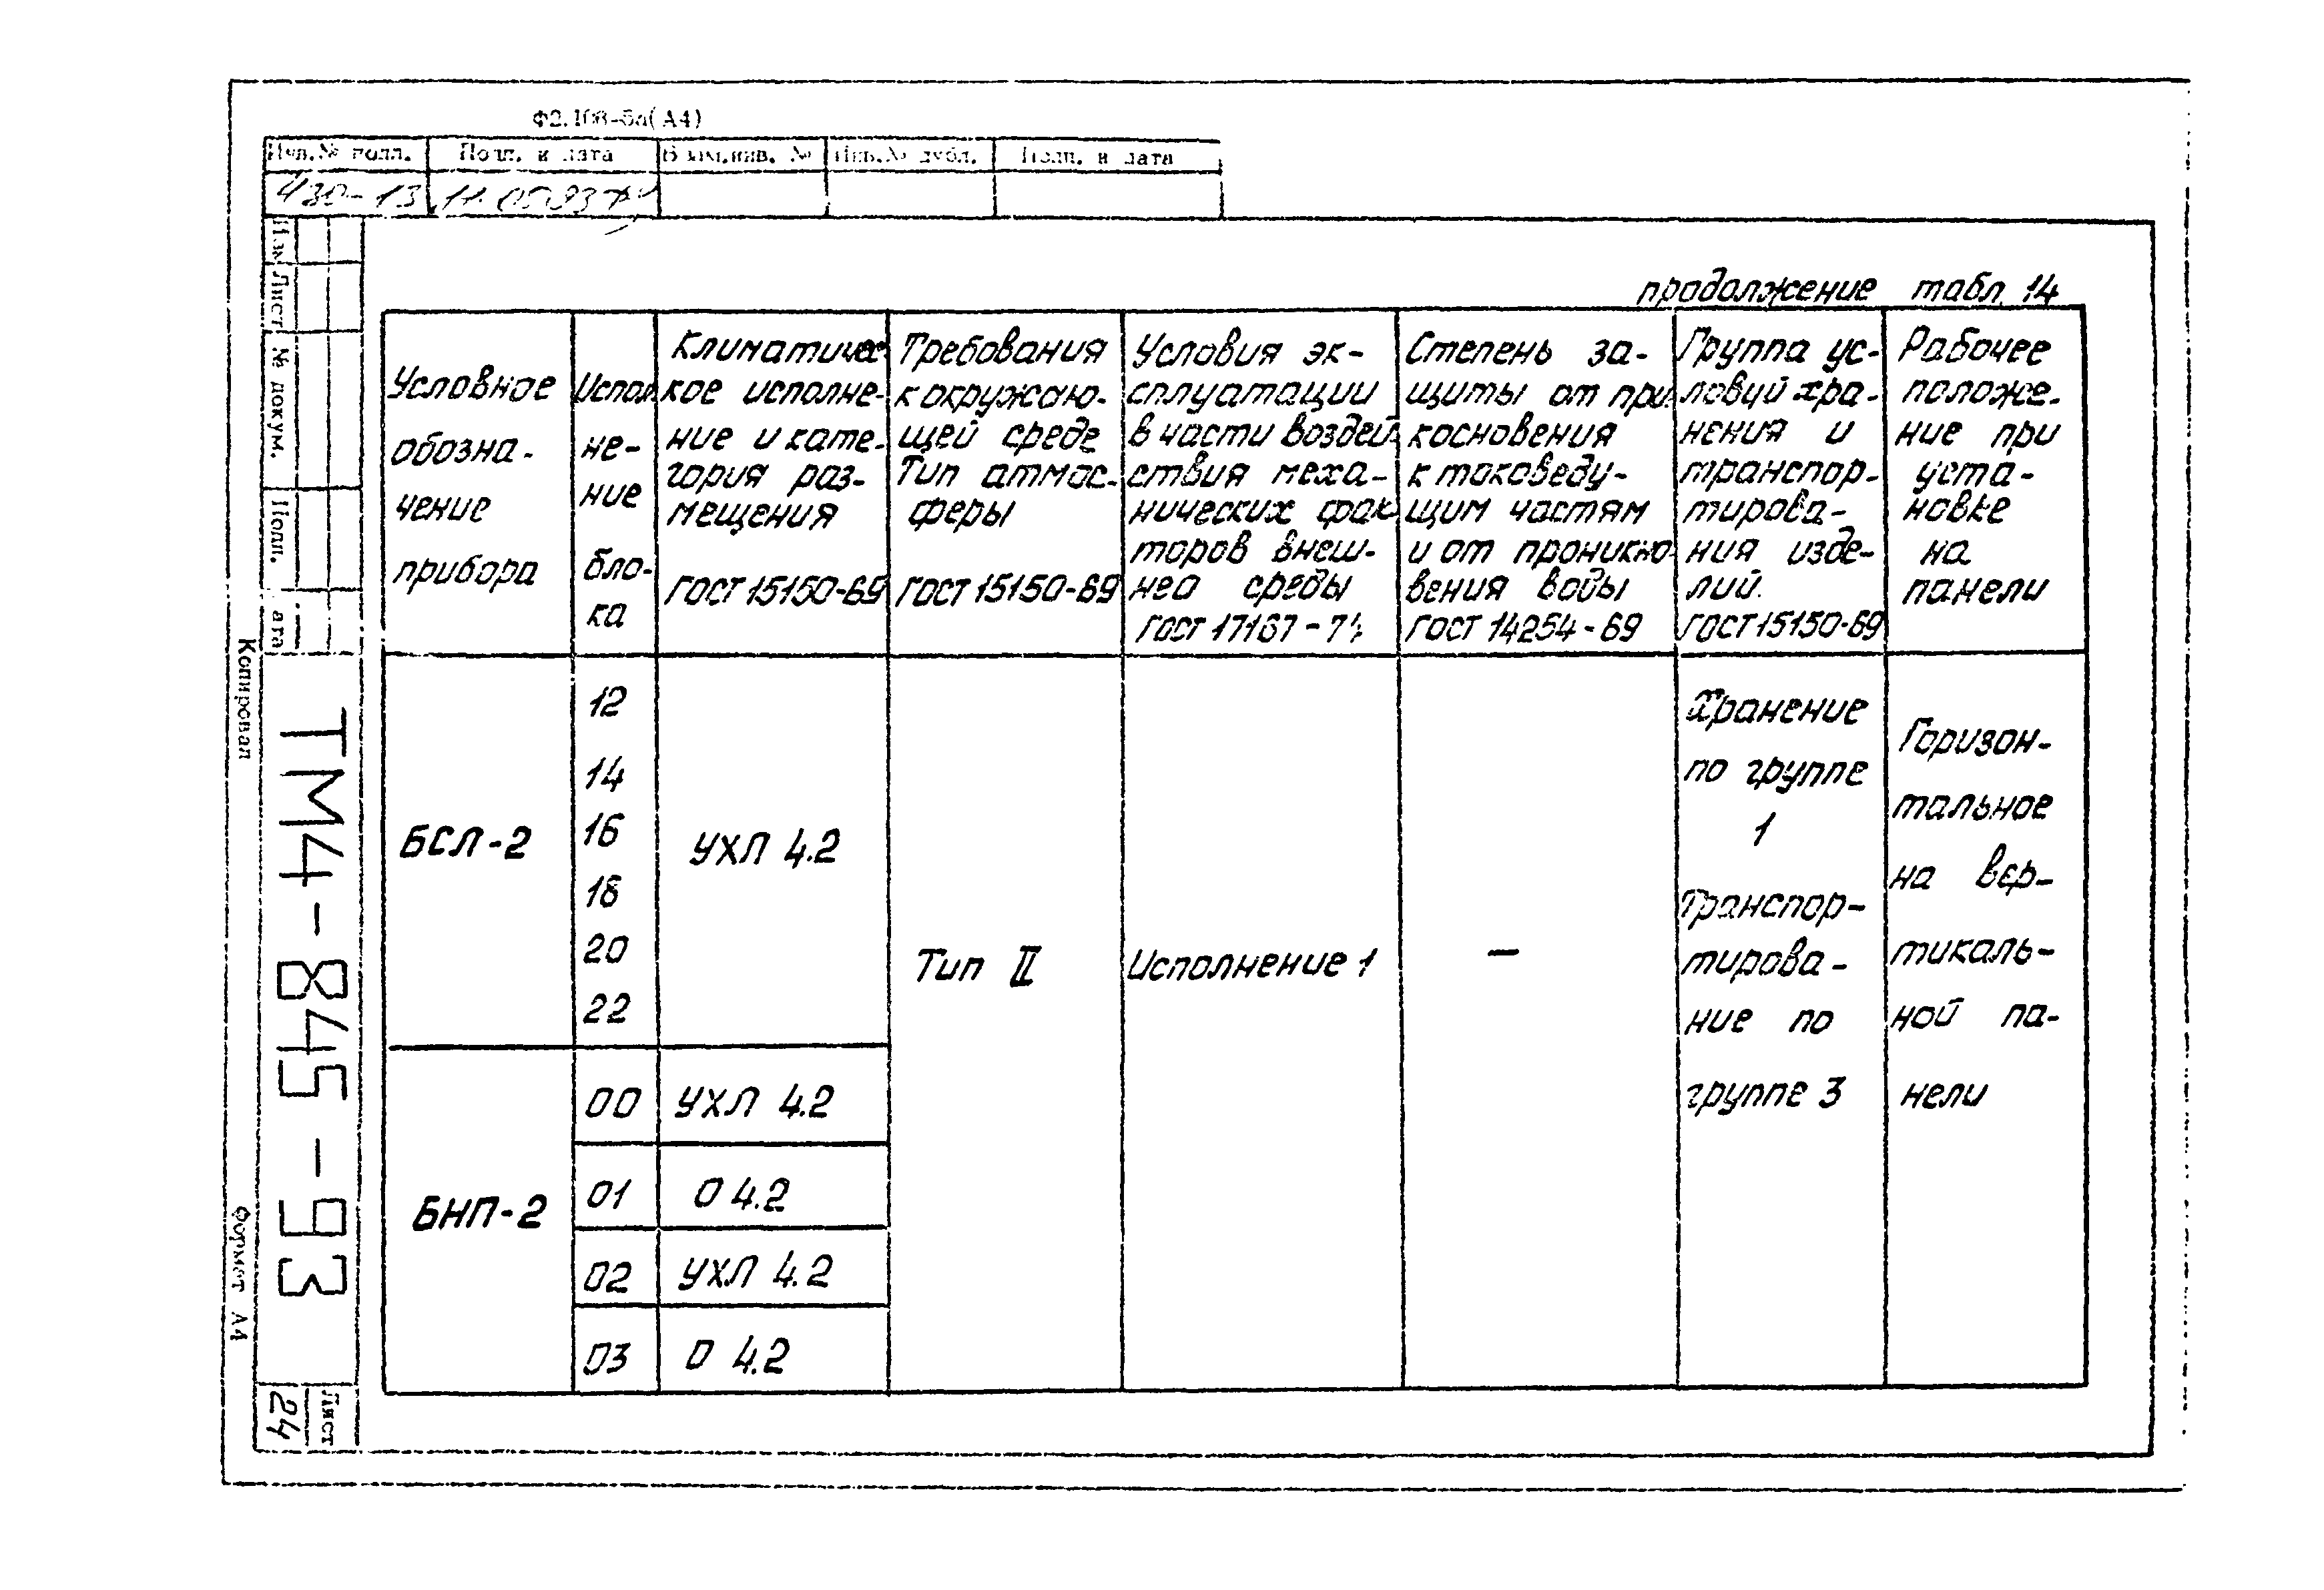 Ф2.108-5а(А4)
Инв.№ подл. Подп. и дата Взам.инв. № Инв.№ дубл. Подп. и дата
430-13 11.05.93
продолжение табл. 14
Условное
обозна-
чение
прибора
Испол
не-
ние
бло-
ка
Климатичес-
кое исполне-
ние и кате-
гория раз-
мещения
ГОСТ 15150-69
Требования
к окружаю-
щей среде
Тип атмос-
феры
ГОСТ 15150-69
Условия эк-
сплуатации
в части воздей-
ствия меха-
нических фак
торов внеш-
нео среды
ГОСТ 17167-7
Степень за-
щиты от при-
косновения
к токоведу-
щим частям
и от проникно-
вения воды
ГОСТ 14254-69
Группа ус-
ловий хра-
нения и
транспор-
тирова-
ния изде-
лий.
ГОСТ 15150-69
Рабочее
положе-
ние при
уста-
новке
на
панели
БСЛ-2
12
14
16
18
20
22
УХЛ 4.2
БНП-2
00 УХЛ 4.2
01 О 4.2
02 УХЛ 4.2
03 О 4.2
Тип II
Исполнение 1
–
Хранение
по группе
1
Транспор-
тирова-
ние по
группе 3
Горизон-
тальное
на вер-
тикаль-
ной па-
нели
Изм Лист № докум. Подп. ата
ТМ4-845-93
Лист
24
Копировал
Формат А4